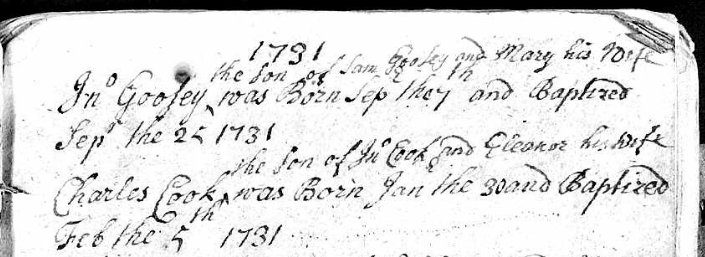 1731
the son of Sam Goosey and Mary his Wife
Jno Goosey ^ was Born Sep the 7th and Baptized
Sepr the 25 1731
the son of Jno Cook and Eleanor his Wife
Charles Cook ^ was Born Jan the 30 and Baptized
Feb the 5th 1731